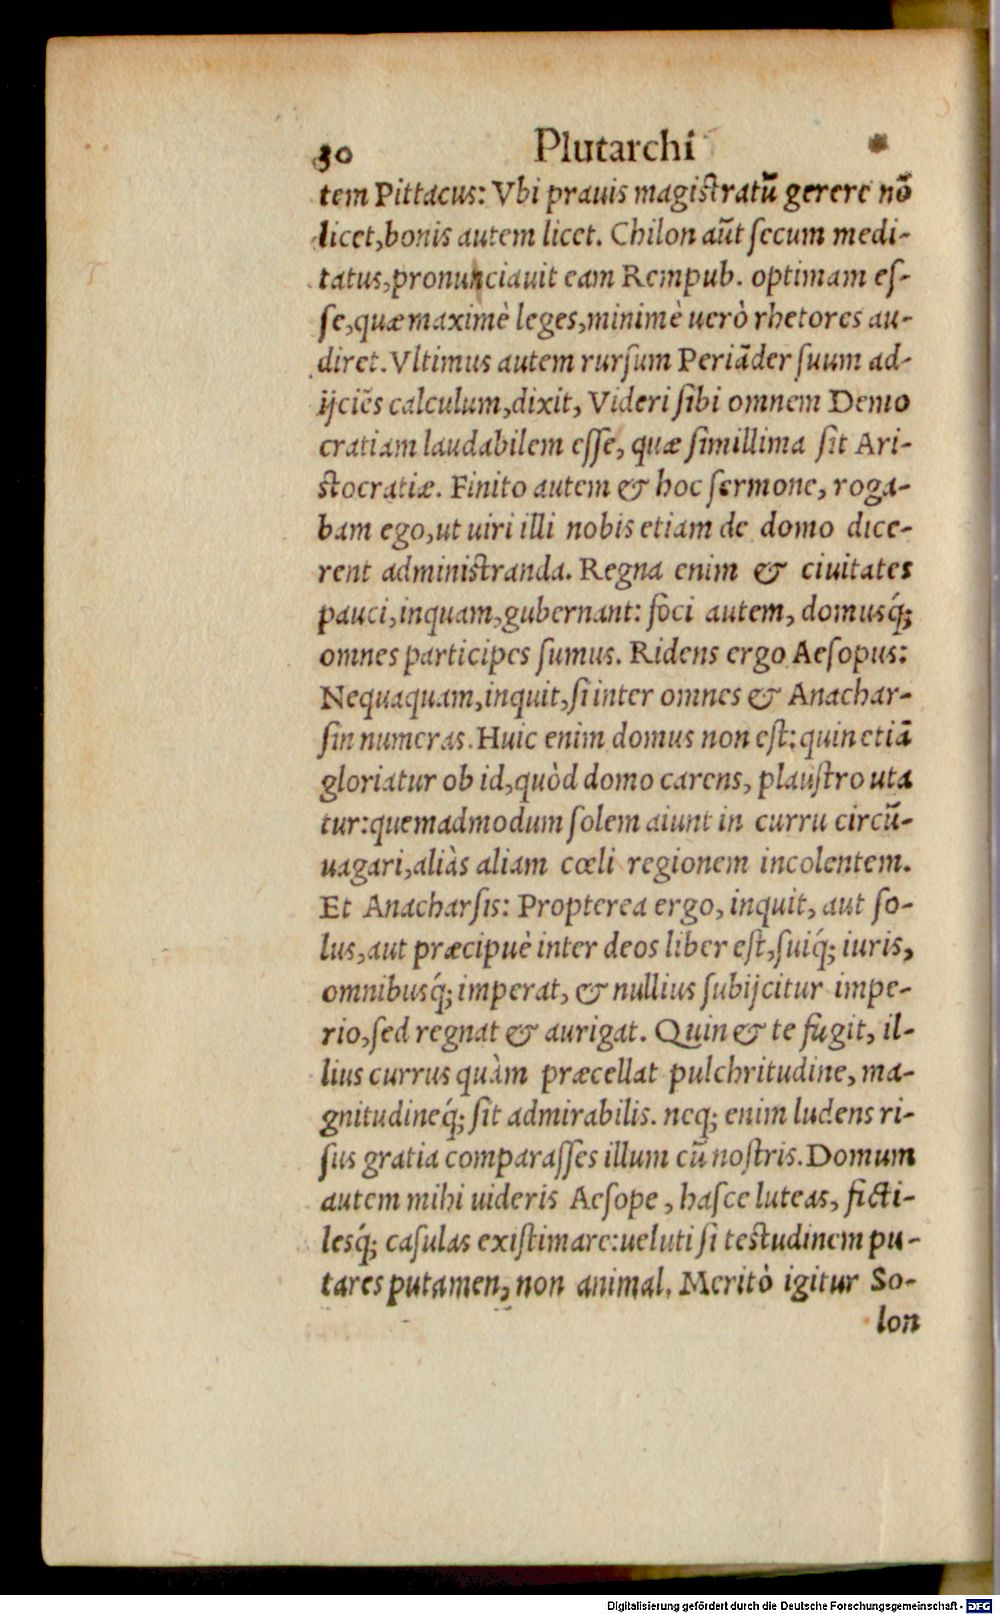 30 Plutarchi
tem Pittacus: Vbi prauis magistratū gerere nō
licet, bonis autem licet. Chilon aūt ſecum medi-
tatus, pronunciauit eam Rempub. optimam eſ-
ſe, quæ maximè leges, minimè uerò rhetores au-
diret. Vltimus autem rurſum Periāder ſuum ad-
ijciēs calculum, dixit, Videri ſibi omnem Demo
cratiam laudabilem eſſe, quæ ſimillima ſit Ari-
ſtocratiæ. Finito autem & hoc ſermone, roga-
bam ego, ut uiri illi nobis etiam de domo dice-
rent adminiſtranda. Regna enim & ciuitates
pauci, inquam, gubernant: foci autem, domusq́;
omnes participes ſumus. Ridens ergo Aeſopus:
Nequaquam, inquit, ſi inter omnes & Anachar-
ſin numeras. Huic enim domus non eſt: quin etiā
gloriatur ob id, quòd domo carens, plauſtro uta
tur: quemadmodum ſolem aiunt in curru circū-
uagari, aliàs aliam cœli regionem incolentem.
Et Anacharſis: Propterea ergo, inquit, aut ſo-
lus, aut præcipuè inter deos liber eſt, ſuiq́; iuris,
omnibusq́; imperat, & nullius ſubijcitur impe-
rio, ſed regnat & aurigat. Quin & te fugit, il-
lius currus quàm præcellat pulchritudine, ma-
gnitudineq́; ſit admirabilis. neq; enim ludens ri-
ſus gratia comparaſſes illum cū noſtris. Domum
autem mihi uideris Aeſope, haſce luteas, ficti-
lesq́; caſulas exiſtimare: ueluti ſi teſtudinem pu-
tares putamen, non animal. Meritò igitur So-
lon
Digitalisierung gefördert durch die Deutsche Forschungsgemeinschaft - DFG